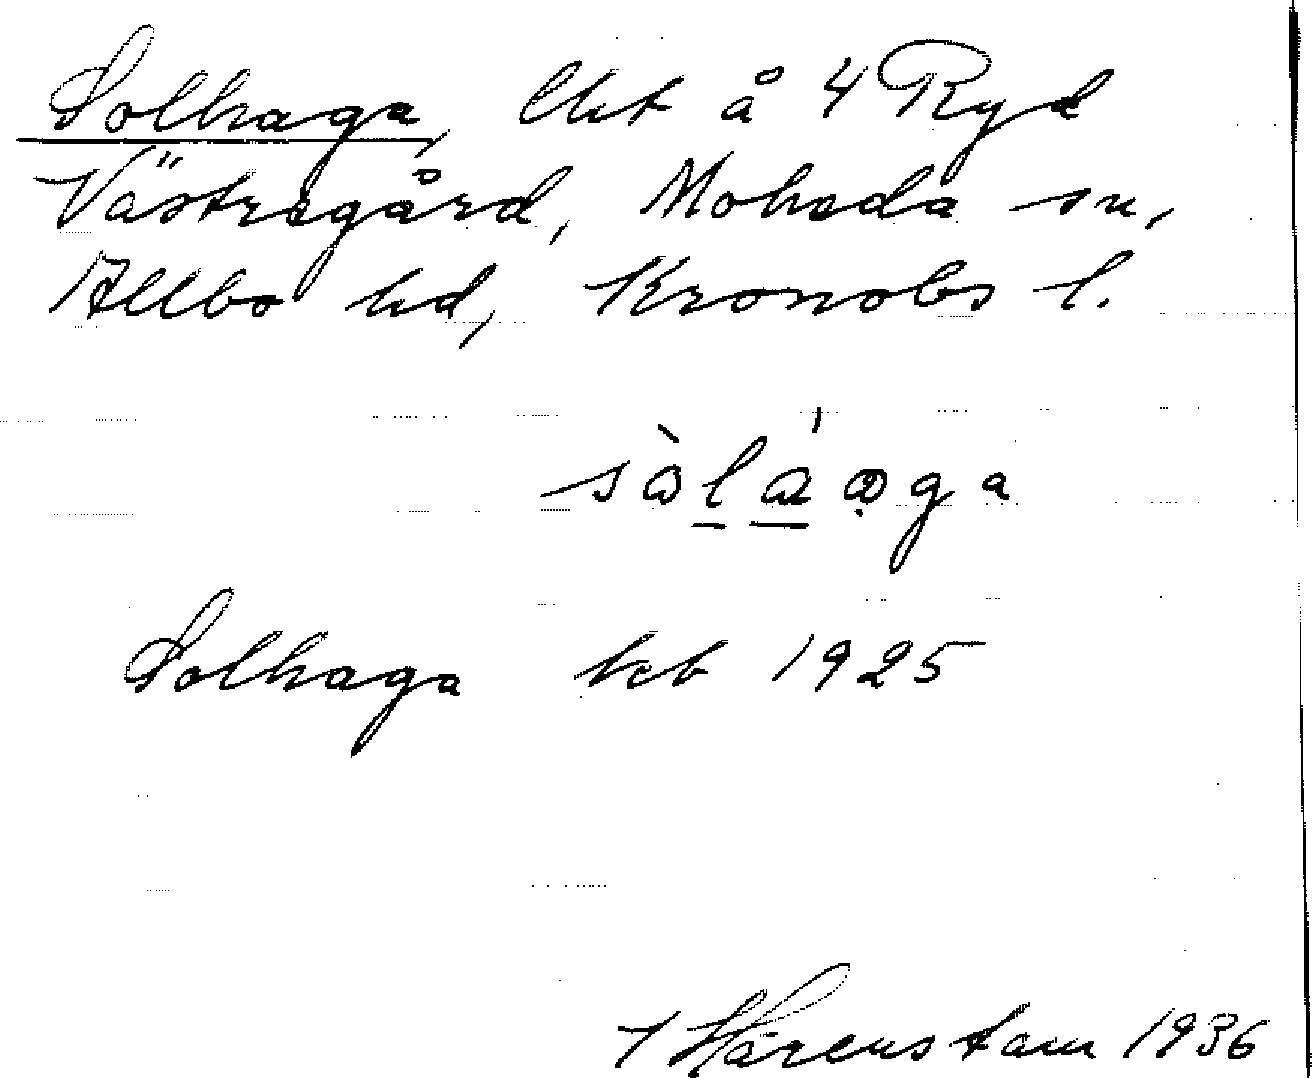 Solhaga, lht å 4 Ryd
Västregård, Moheda sn,
Allbo hd, Kronobs l.
Solhaga kb 1925
Härenstam 1936